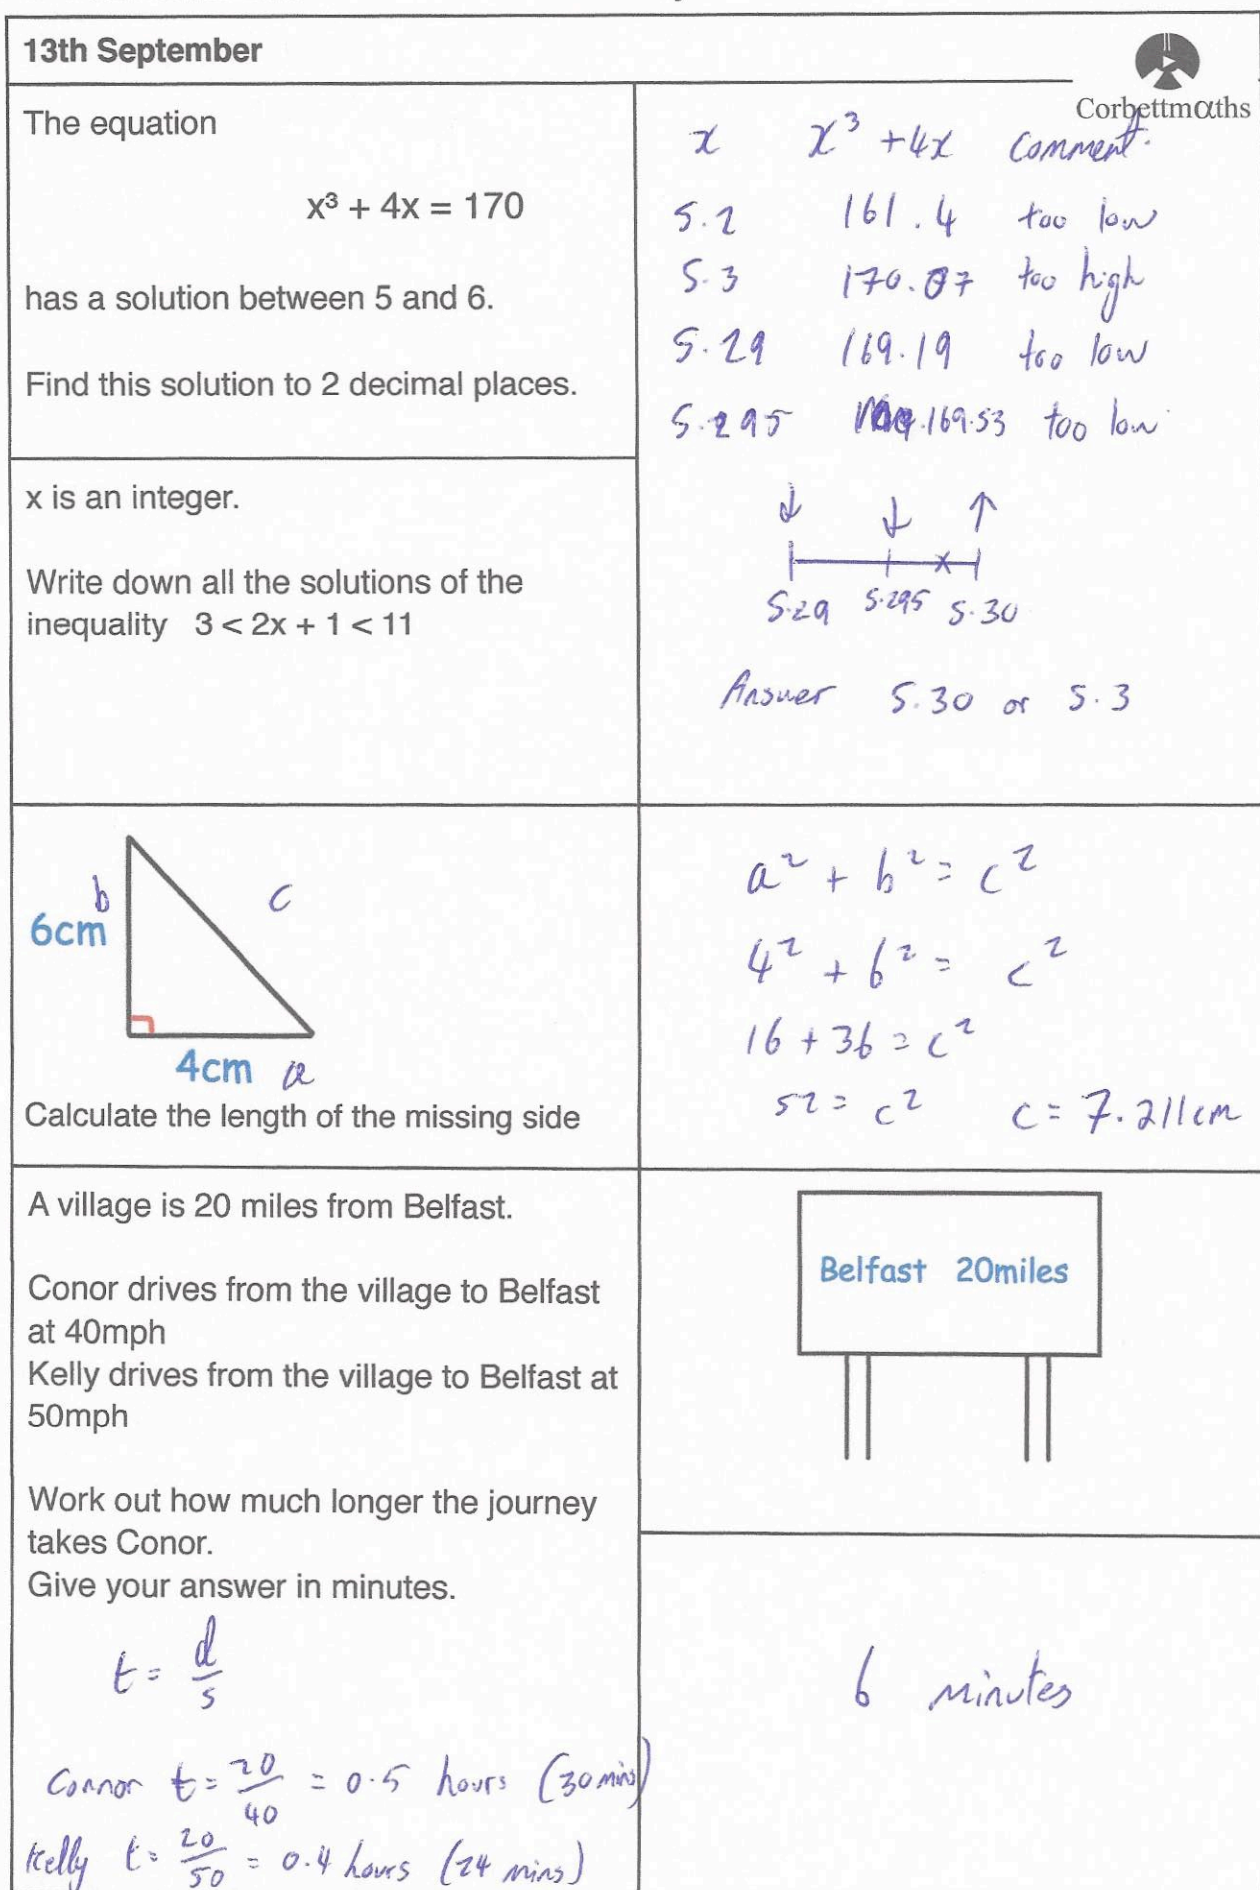 13th September
Corbettmαths
The equation
x³ + 4x = 170
has a solution between 5 and 6.
Find this solution to 2 decimal places.
x x³ + 4x Comment.
5.2 161.4 too low
5.3 170.07 too high
5.29 169.19 too low
5.295 169.53 too low
5.29 5.295 5.30
Answer 5.30 or 5.3
x is an integer.
Write down all the solutions of the
inequality 3 < 2x + 1 < 11
b
c
6cm
4cm a
Calculate the length of the missing side
a² + b² = c²
4² + 6² = c²
16 + 36 = c²
52 = c² c = 7.211cm
A village is 20 miles from Belfast.
Conor drives from the village to Belfast
at 40mph
Kelly drives from the village to Belfast at
50mph
Work out how much longer the journey
takes Conor.
Give your answer in minutes.
t = d/s
Connor t = 20/40 = 0.5 hours (30 mins)
Kelly t = 20/50 = 0.4 hours (24 mins)
Belfast 20miles
6 minutes